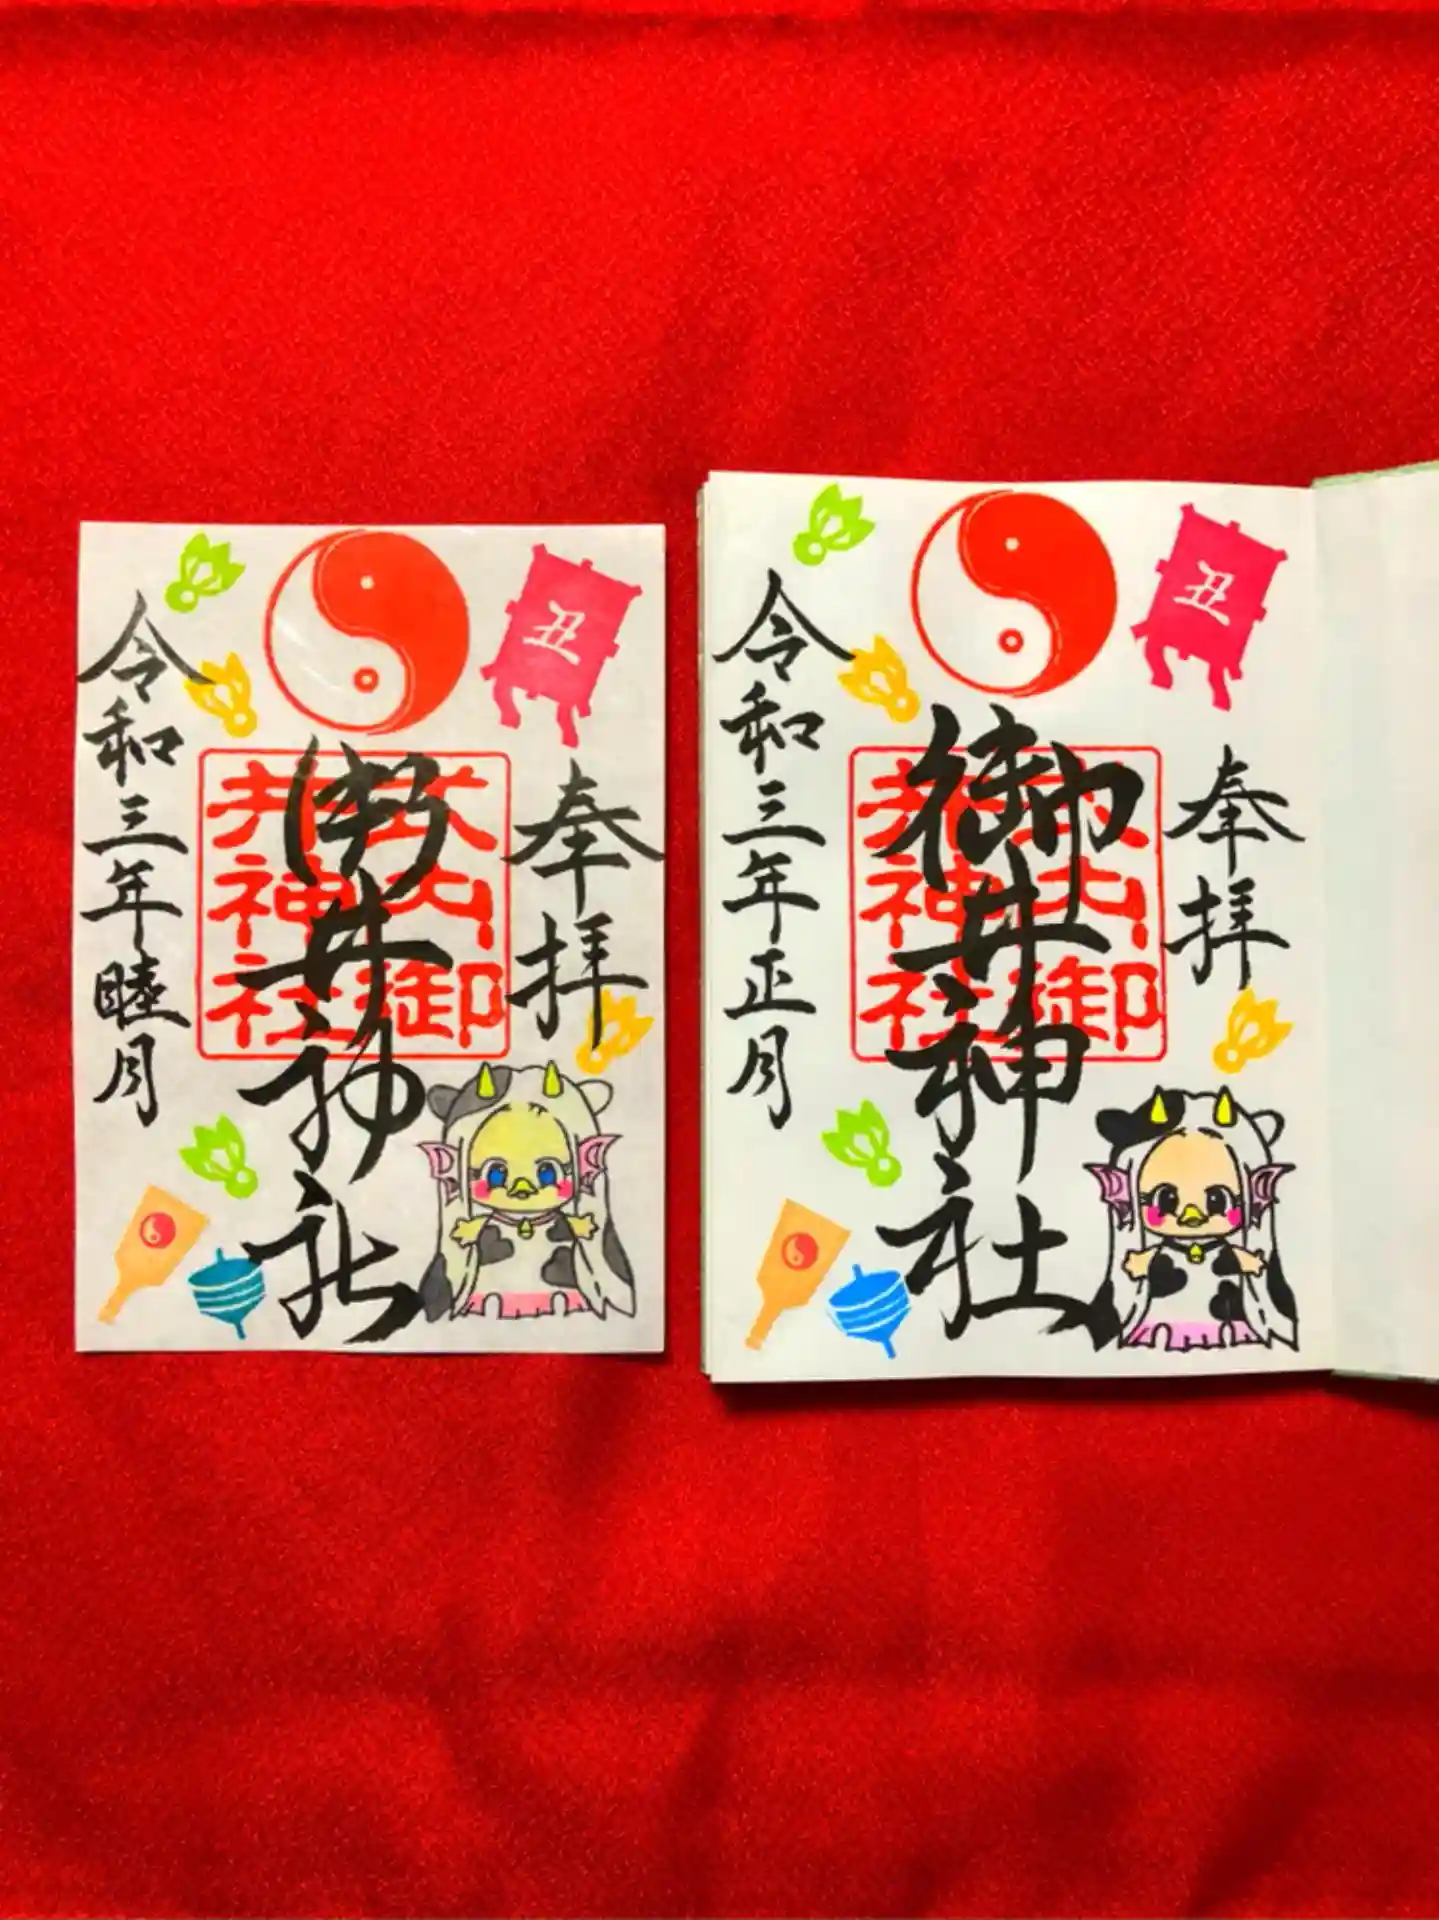 丑
奉拝
御井神社
御
井神社
令和三年睦月
丑
奉拝
御井神社
御
井神社
令和三年正月